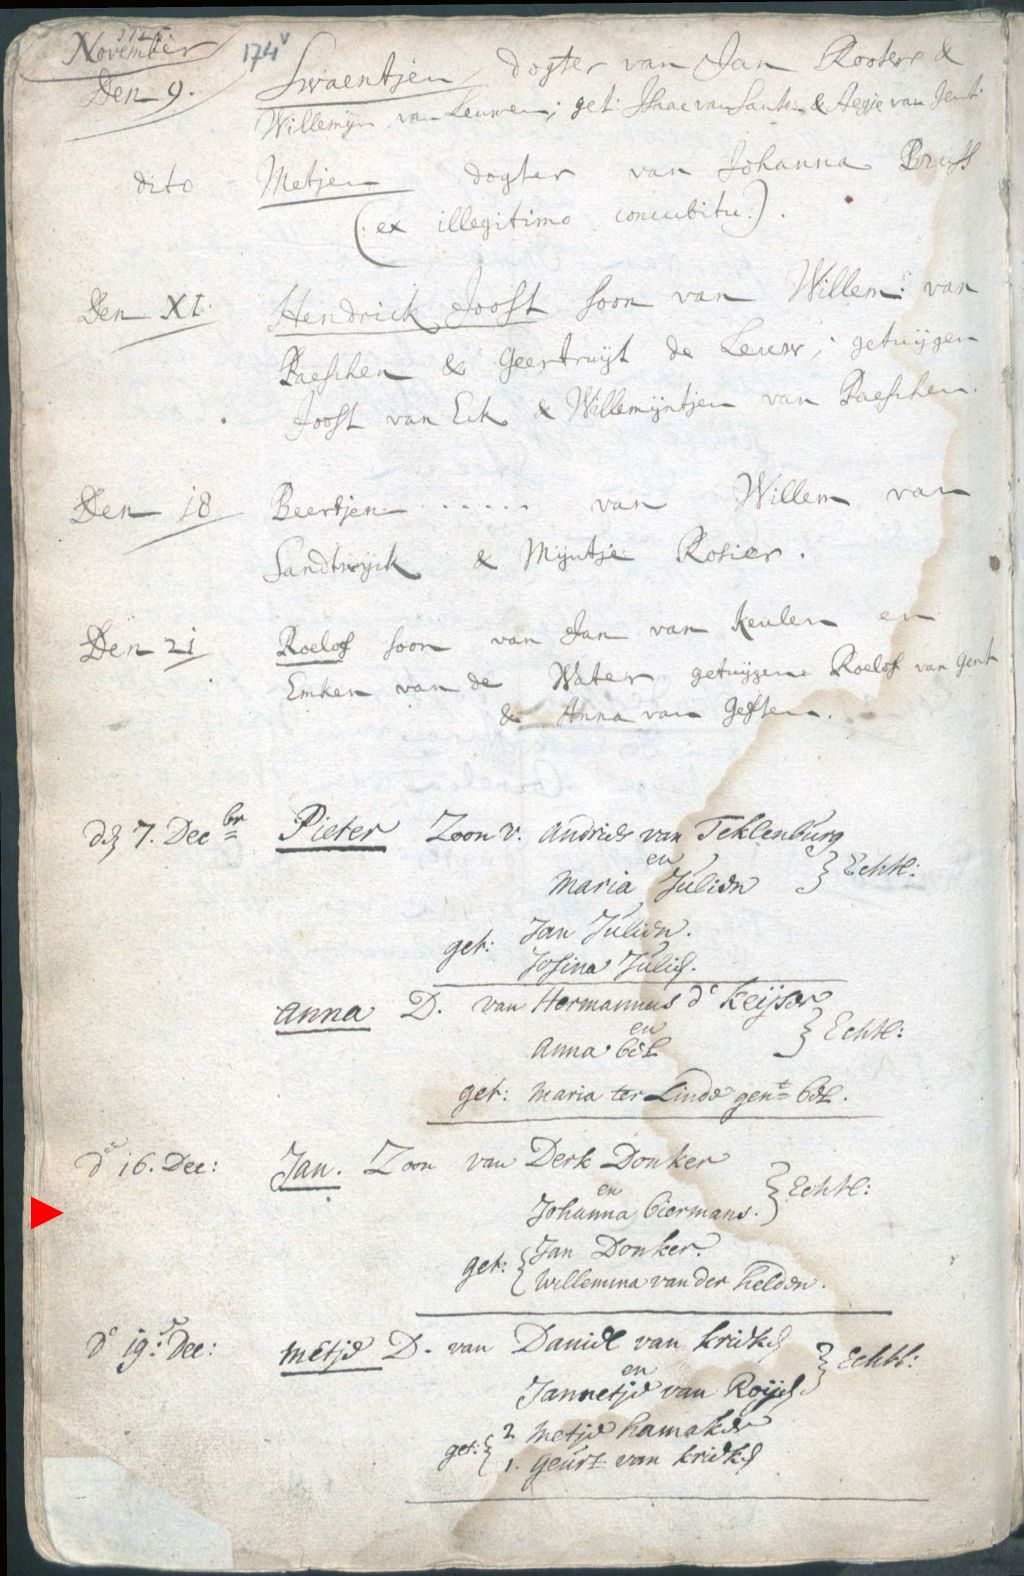 November
174v
Den 9. Swaentjen dogter van Jan Rooters &
Willemijn van Leuwen; get: Isaac van Santen & Aegje van Gent.
dito Metjen dogter van Johanna Bruss
(ex illegitimo concubitu.).
Den XI. Hendrick Joost soon van Willem van
Paeschen & Geertruijt de Leuw; getuijgen
Joost van Eck & Willemijntjen van Paeschen.
Den 18 Beertjen ..... van Willem van
Sandtwijck & Mijntje Rosier.
Den 21 Roelof soon van Jan van Keulen en
Emken van de Water getuijgen Roelof van Gent
& Anna van Gesten.
d 7. Decbr Pieter Zoon v. Andries van Teklenburg
en
Maria Julien } Echtl:
get: Jan Julien.
Josina Julien.
Anna D. van Hermannus de Keijser
en
Anna Bel } Echtl:
get: Maria ter Linde gent Bel.
de 16. Dec: Jan. Zoon van Derk Donker
en
Johanna Biermans. } Echtl:
get: { Jan Donker.
Willemina van der Helden.
de 19. Dec: Metje D. van Daniel van Krieken
en
Jannetje van Roijen } Echtl:
get: { 2 Metje Hamaker
1. Geurt van Krieken